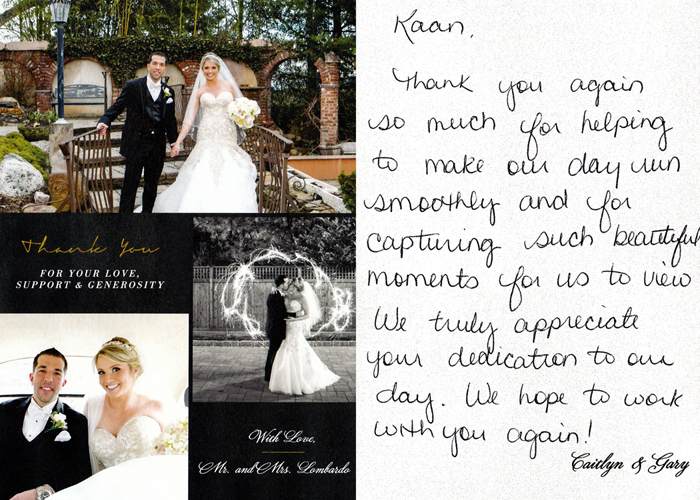 Thank You
FOR YOUR LOVE,
SUPPORT & GENEROSITY
With Love,
Mr. and Mrs. Lombardo
Kaan,
Thank you again
so much for helping
to make our day run
smoothly and for
capturing such beautiful
moments for us to view
We truly appreciate
your dedication to our
day. We hope to work
with you again!
Caitlyn & Gary